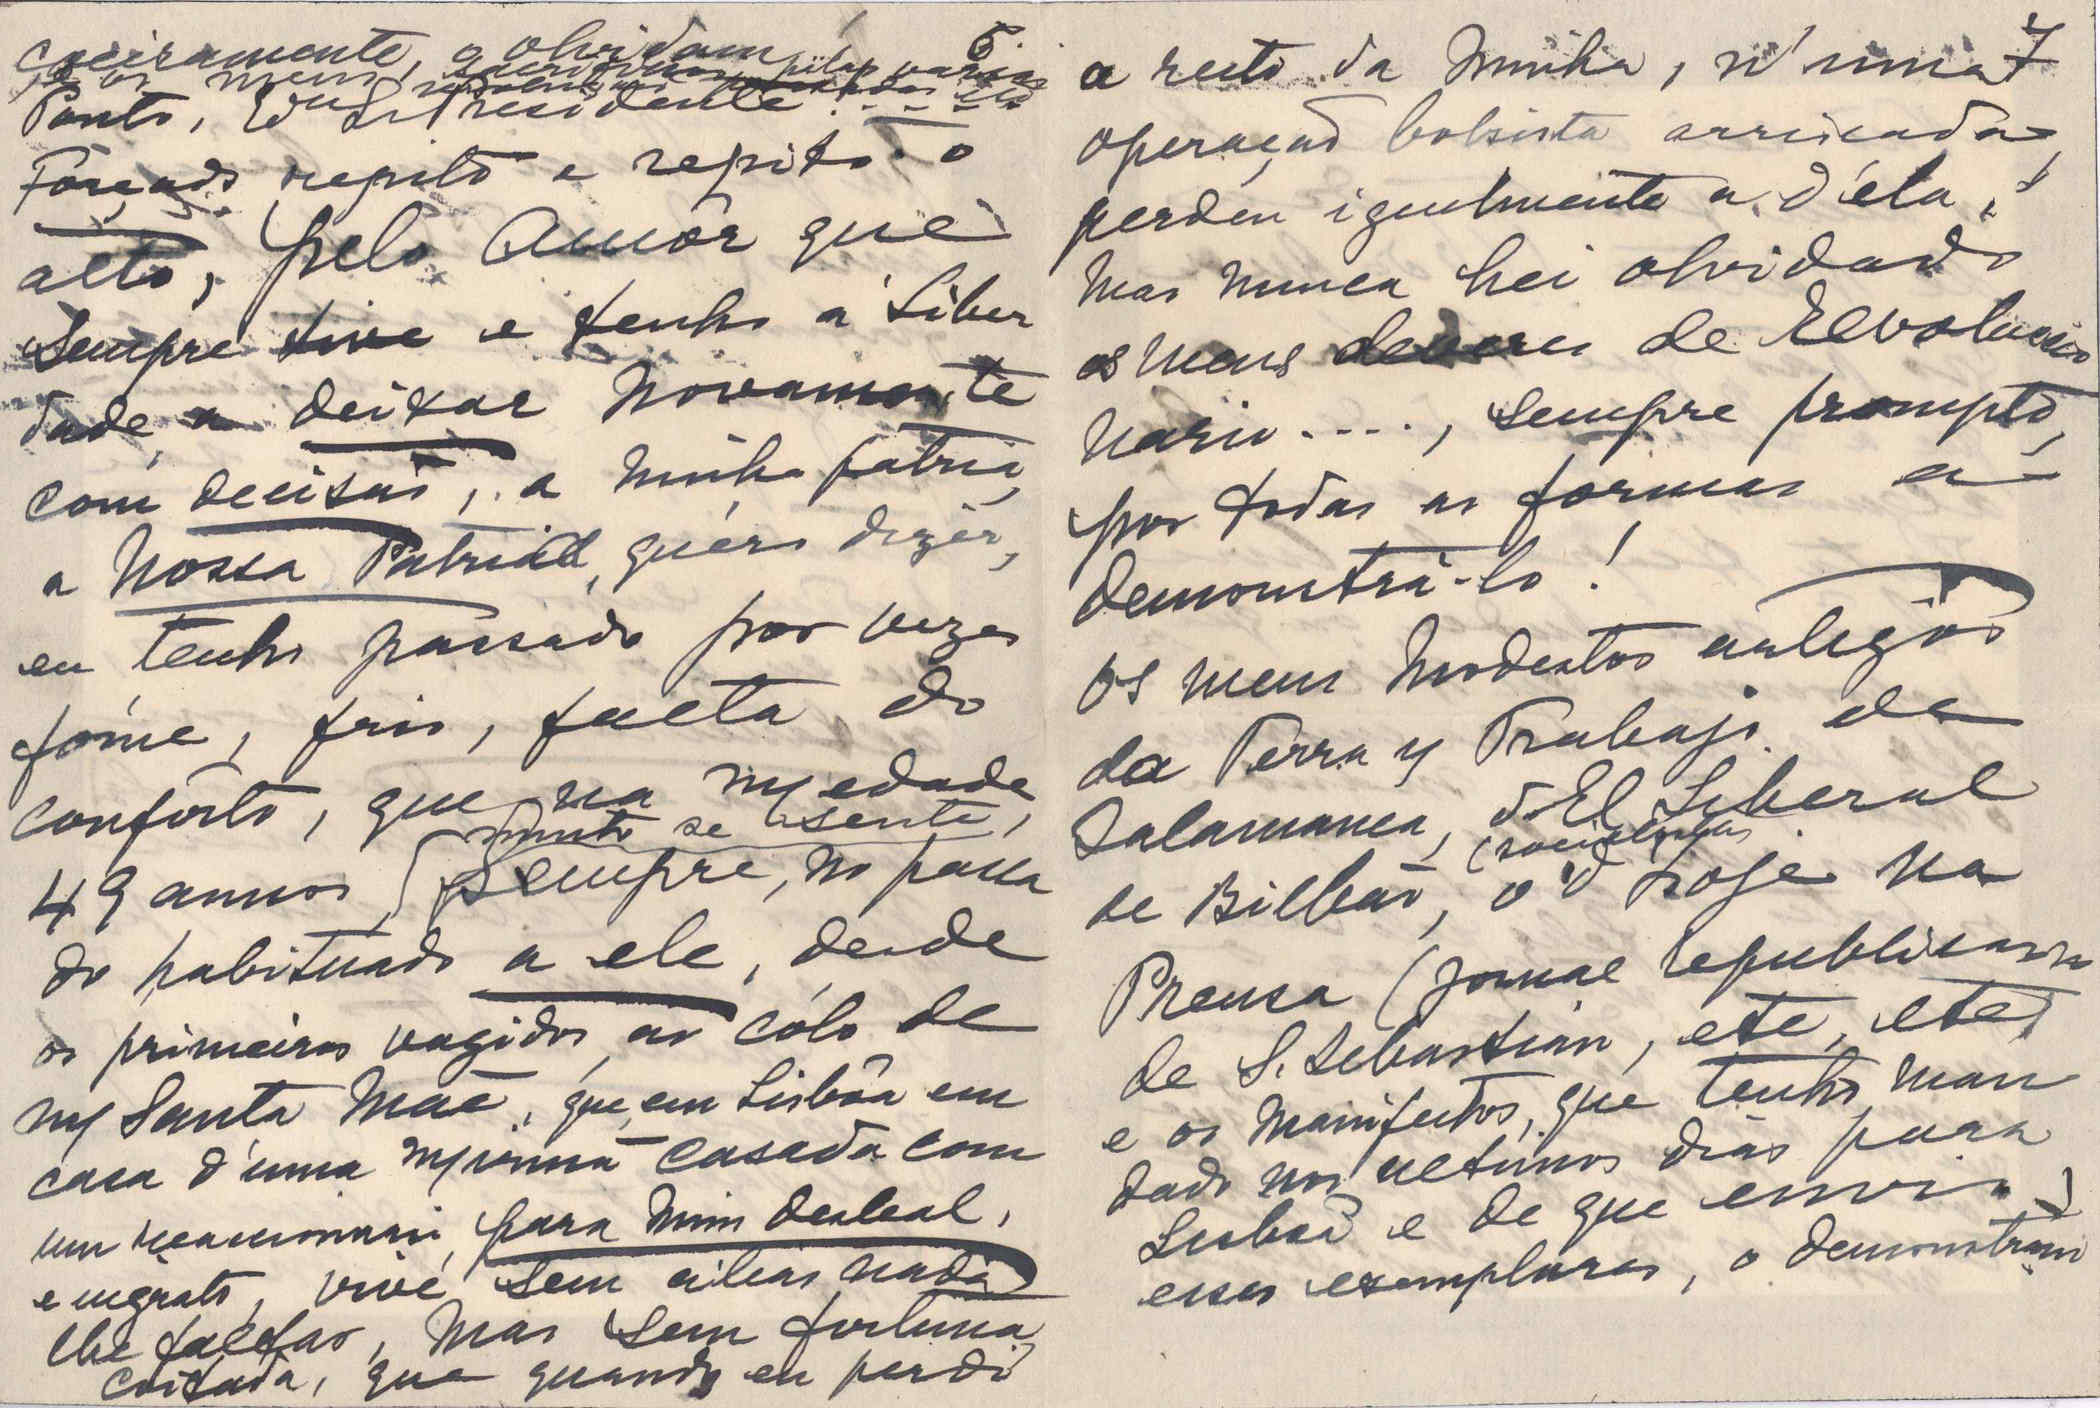 5.
olvidam
os meus
Ponto, Exmo Sr Presidente!....
Forçado, repito e repito o
alto, pelo Amôr que
Sempre tive e tenho á Liber
dade, a deixar Novamente
com decisão, a minha patria,
a Nossa Patria, quero dizêr,
eu tenho passado por vezes
fóme, frio, falta do
conforto, que na my edade,
muito se sente,
49 annos, sempre, no passa
do habituado a ele, desde
os primeiros vagidos, ao cólo de
my Santa Mãe, que, em Lisbôa em
casa d'uma my irmã casada com
um reaccionario, para mim desleal,
e ingrato, vive sem ali nada
lhe faltar, mas sem fortuna,
coitada, que quando eu perdi
7
a resto da minha, n'uma
operação bolsista arriscada,
perdeu igualmente a d'ela,
Mas nunca hei olvidado
os meus deveres de Revolucio
nario...., sempre prompto,
por todas as formas a
demonstrá-lo!
Os meus modestos artigos
da Terra y Trabajo de
Salamanca, d'El Liberal
(socialistas)
de Bilbao, o d'hoje na
Prensa (jornal republicano
de S. Sebastian, etc, etc,
e os Manifestos, que tenho man
dado nos ultimos dias para
Lisboa e de que envio
esses exemplares, o demonstram